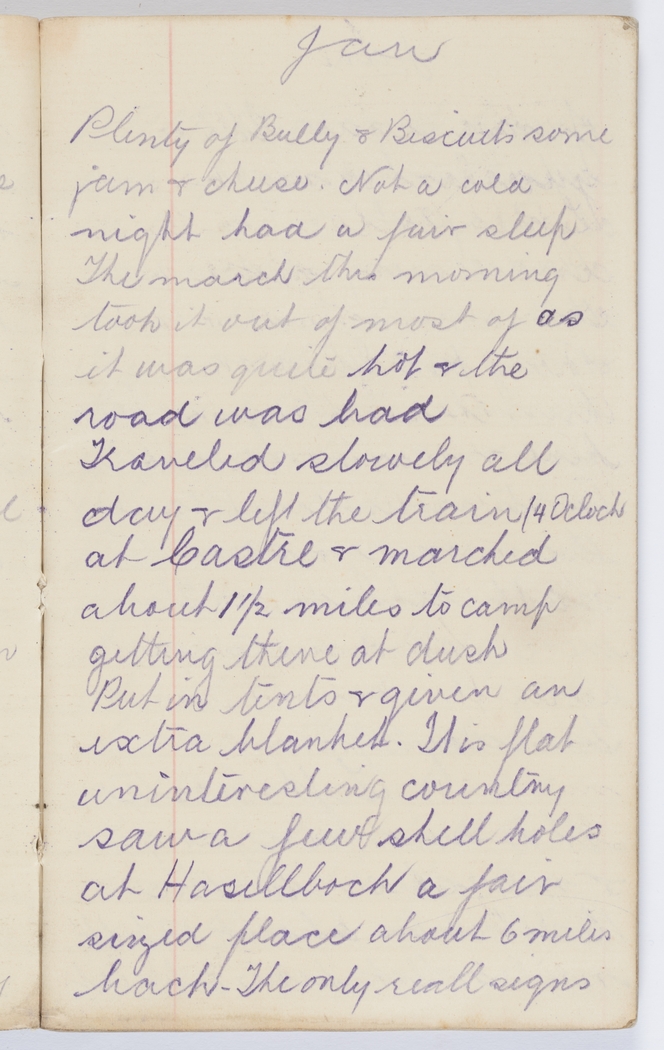 Jan
Plenty of Bully & Biscuits some
jam & cheese. Not a cold
night had a fair sleep
The march this morning
took it out of most of as
it was quite hot & the
road was bad
Traveled slowely all
day & left the train (4 Oclock
at Castre & marched
about 1 1/2 miles to camp
getting there at dusk
Put in tents & given an
extra blanket. It is flat
uninteresting country
saw a few shell holes
at Hasellbock a fair
sized place about 6 miles
back - The only reall signs